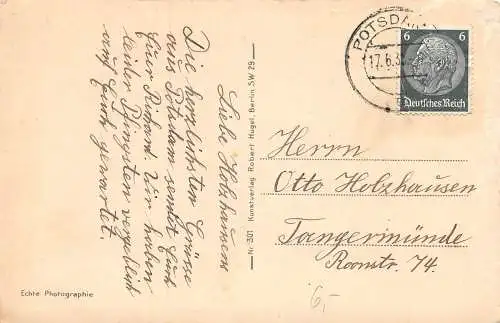 Liebe Holzhausens
Die herzlichsten Grüsse
aus Potsdam sendet Euch
Euer Richard. Wir haben
leider Pfingsten vergeblich
auf Euch gewartet.
Echte Photographie
Nr. 301 Kunstverlag Robert Hugel, Berlin SW 29
POTSDAM
17.6.3
6 6
Deutsches Reich
Herrn
Otto Holzhausen
Tangermünde
Roonstr. 74.
6,-